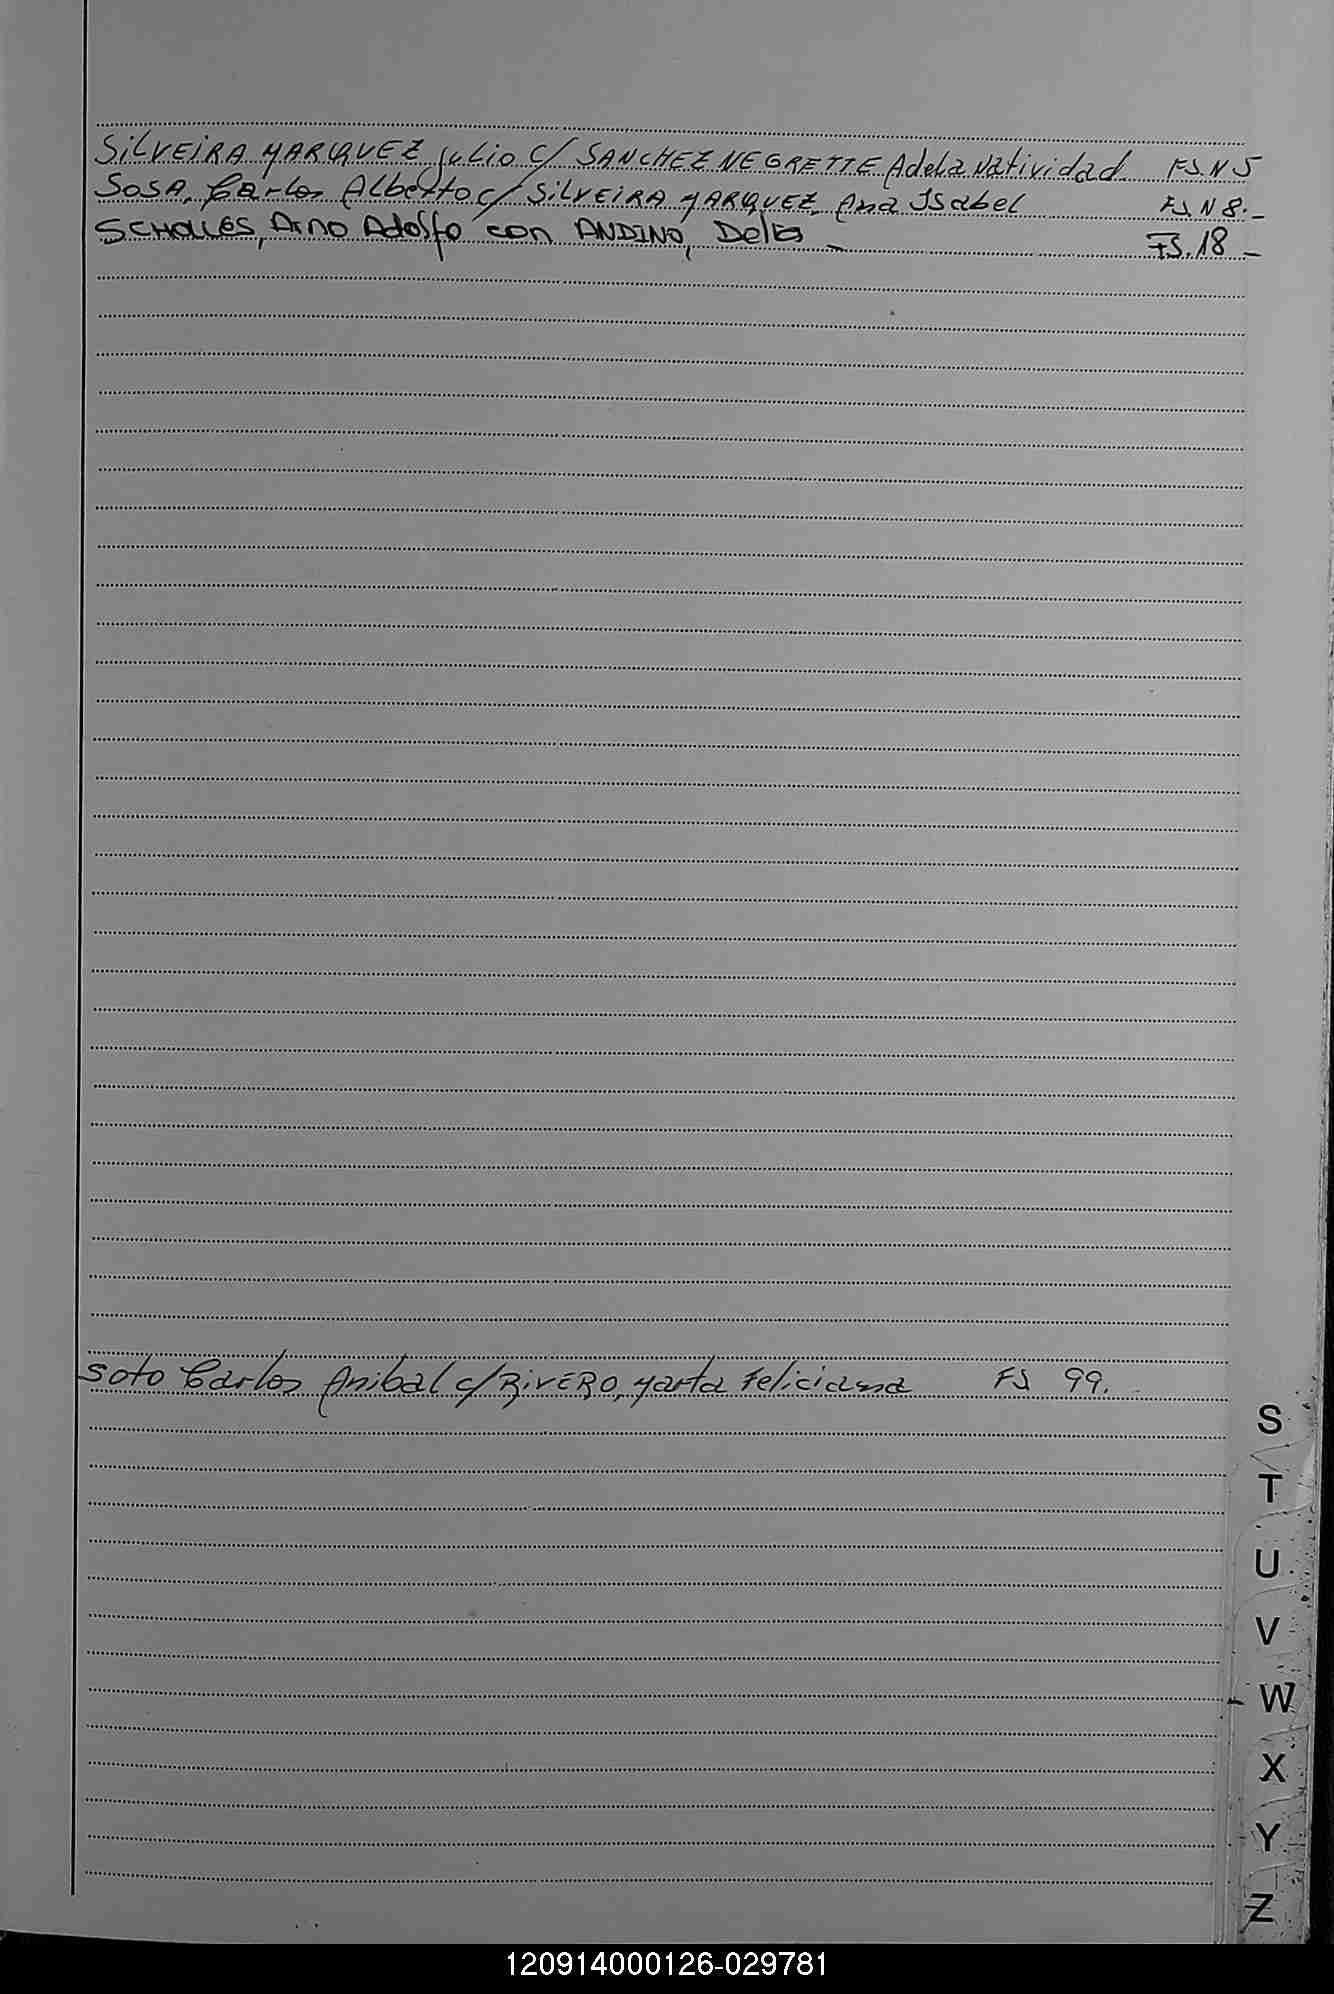 SILVEIRA MARQUEZ Julio C/ SANCHEZ NEGRETTE Adela Natividad FS N 5
SOSA, Carlos Alberto c/ SILVEIRA MARQUEZ, Ana Isabel FS N 8.-
SCHOLLES, Arno Adolfo con ANDINO, Delia - FS. 18 -
Soto Carlos Anibal c/ RIVERO, Marta Feliciana FS 99.
S
T
U
V
W
X
Y
Z
120914000126-029781